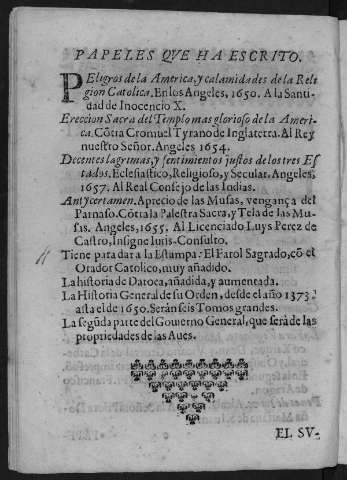 PAPELES QVE HA ESCRITO.
PEligros de la America, y calamidades de la Reli
gion Catolica. En los Angeles, 1650. A la Santi-
dad de Inocencio X.
Ereccion Sacra del Templo mas glorioso de la Ameri-
ca. Cõtra Cromuel Tyrano de Inglaterra. Al Rey
nuestro Señor. Angeles 1654.
Decentes lagrimas, y sentimientos justos de los tres Es
tados. Eclesiastico, Religioso, y Secular. Angeles,
1657. Al Real Consejo de las Indias.
Antycertamen. Aprecio de las Musas, vengança del
Parnaso. Cõtra la Palestra Sacra, y Tela de las Mu-
sas. Angeles, 1655. Al Licenciado Luys Perez de
Castro, Insigne Iuris-Consulto.
Tiene para dar a la Estampa. El Farol Sagrado, cõ el
Orador Catolico, muy añadido.
La historia de Daroca, añadida, y aumentada.
La Historia General de su Orden, desde el año 1373.
asta el de 1650. Serán seis Tomos grandes.
La segũda parte del Gouierno General, que será de las
propriedades de las Aues.
EL SV-